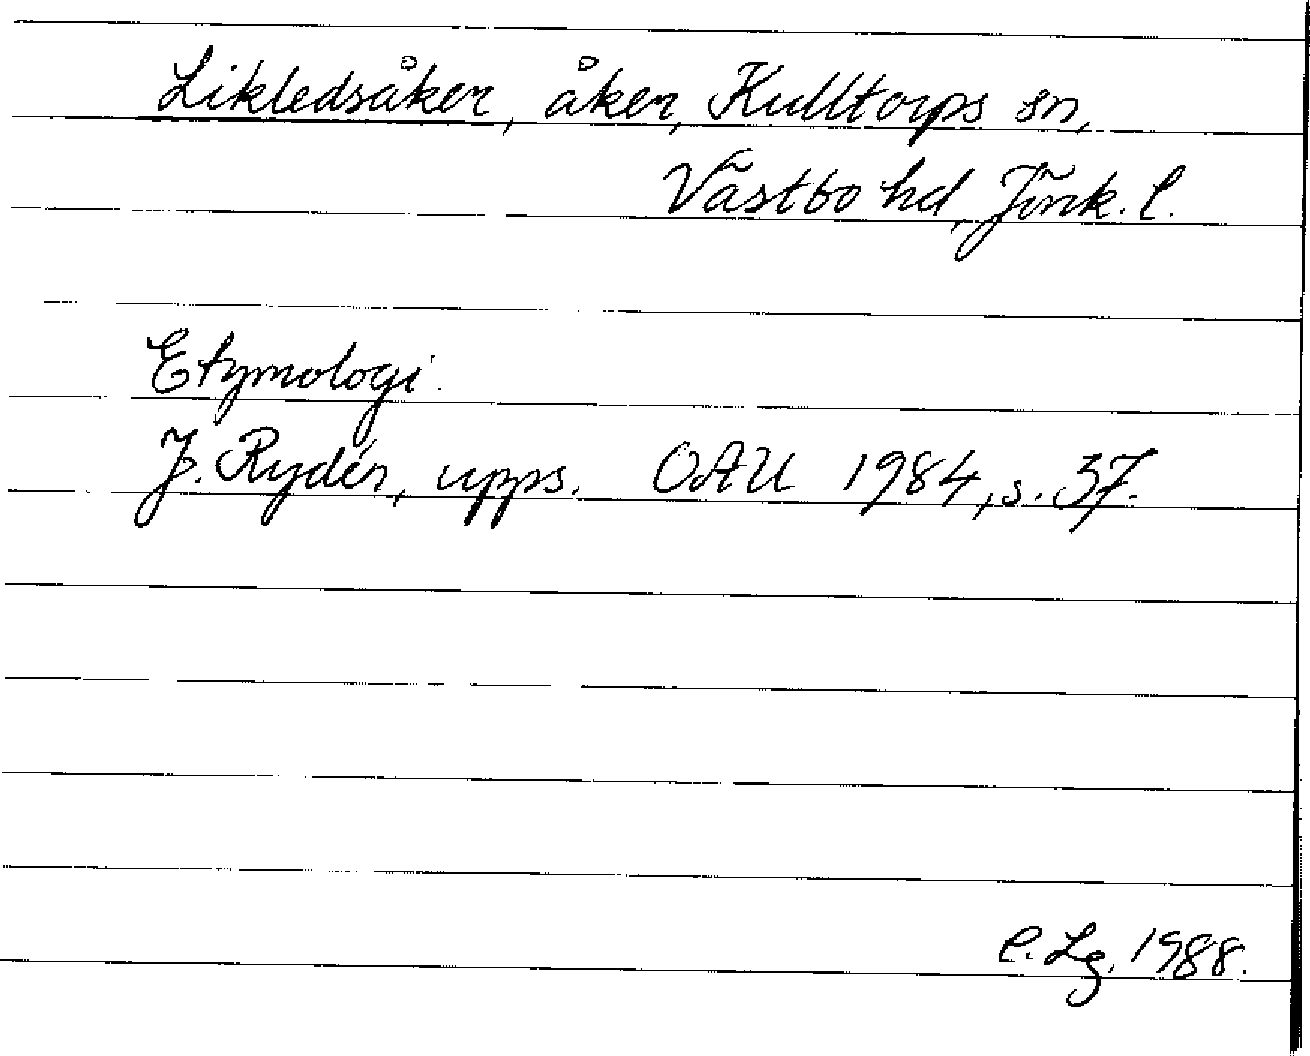 Likledsåker, åker, Kulltorps sn,
Västbo hd, Jönk. l.
Etymologi.
J. Rydén, upps. OAU 1984, s. 37.
C. Lg. 1988.